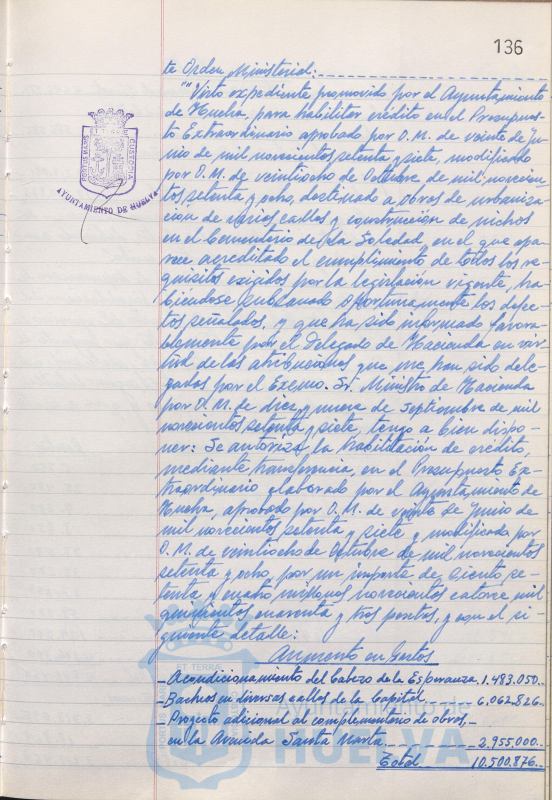 136
te Orden Ministerial:
"Visto expediente promovido por el Ayuntamiento
de Huelva, para habilitar crédito en el Presupues-
to Extraordinario aprobado por O.M. de veinte de Ju-
nio de mil novecientos setenta y siete, modificado
por O.M. de veintiocho de Octubre de mil novecien-
tos setenta y ocho, destinado a obras de urbaniza-
cion de varias calles y construcción de nichos
en el Cementerio de la Soledad, en el que apa-
rece acreditado el cumplimiento de todos los re-
quisitos exigidos por la legislación vigente, ha-
biéndose subsanado oportunamente los defec-
tos señalados, y que ha sido informado favora-
blemente por el Delegado de Hacienda en vir-
tud de las atribuciones que me han sido dele-
gadas por el Excmo. Sr. Ministro de Hacienda
por O.M. de diez y nueve de Septiembre de mil
novecientos setenta y siete, tengo a bien dispo-
ner: Se autoriza la habilitación de crédito,
mediante transferencia, en el Presupuesto Ex-
traordinario elaborado por el Ayuntamiento de
Huelva, aprobado por O.M. de veinte de Junio de
mil novecientos setenta y siete y modificado por
O.M. de veintiocho de Octubre de mil novecientos
setenta y ocho, por un importe de ciento se-
tenta y cuatro millones novecientos catorce mil
quinientas cuarenta y tres pesetas, y con el si-
guiente detalle:
Aumento en Gastos
Acondicionamiento del Cabezo de la Esperanza. 1.483.050.-
Bacheo en diversas calles de la Capital 6.062.826.-
Proyecto adicional al complementario de obras,
en la Avenida Santa Marta 2.955.000.-
Total 10.500.876.-
PORTUS MARIS CUSTODIA
AYUNTAMIENTO DE HUELVA
ET TERRAE
Ayuntamiento de
HUELVA